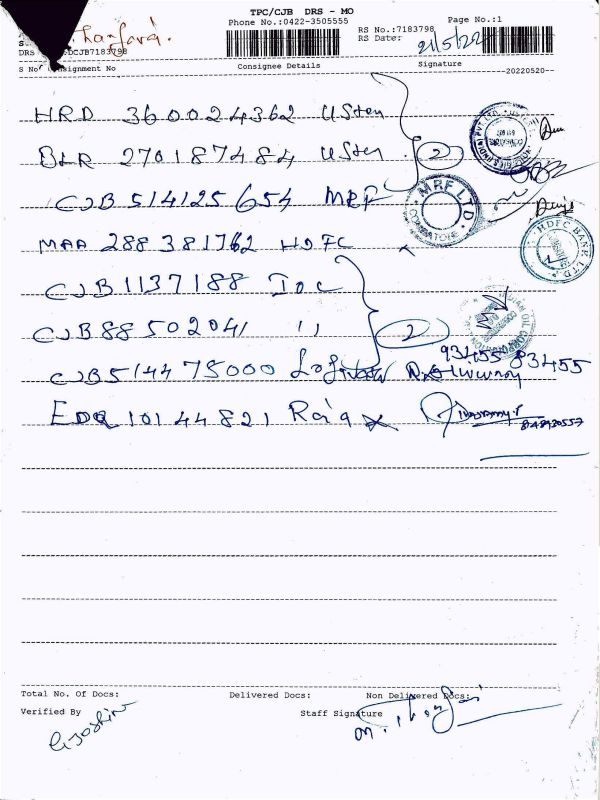 TPC/CJB DRS - MO
Phone No.:0422-3505555
RS No.:7183798
Page No.:1
RS Date:
21/5/22
DRS
DCJB7183798
S No Consignment No
Consignee Details
Signature
20220520
HRD 360024362 Usten
BLR 270187484 Usten
2
CJB 514125654 MRF
MRF LTD.
COIMBATORE
MAA 288381762 HDFC
HDFC BANK LTD.
CJB 1137188 IOC
CJB 88502041 ,,
2
INDIAN OIL CORPORATION
93455 83455
CJB 514475000
EDQ 10144821 Raja
Total No. Of Docs:
Delivered Docs:
Non Delivered Docs:
Verified By
Staff Signature